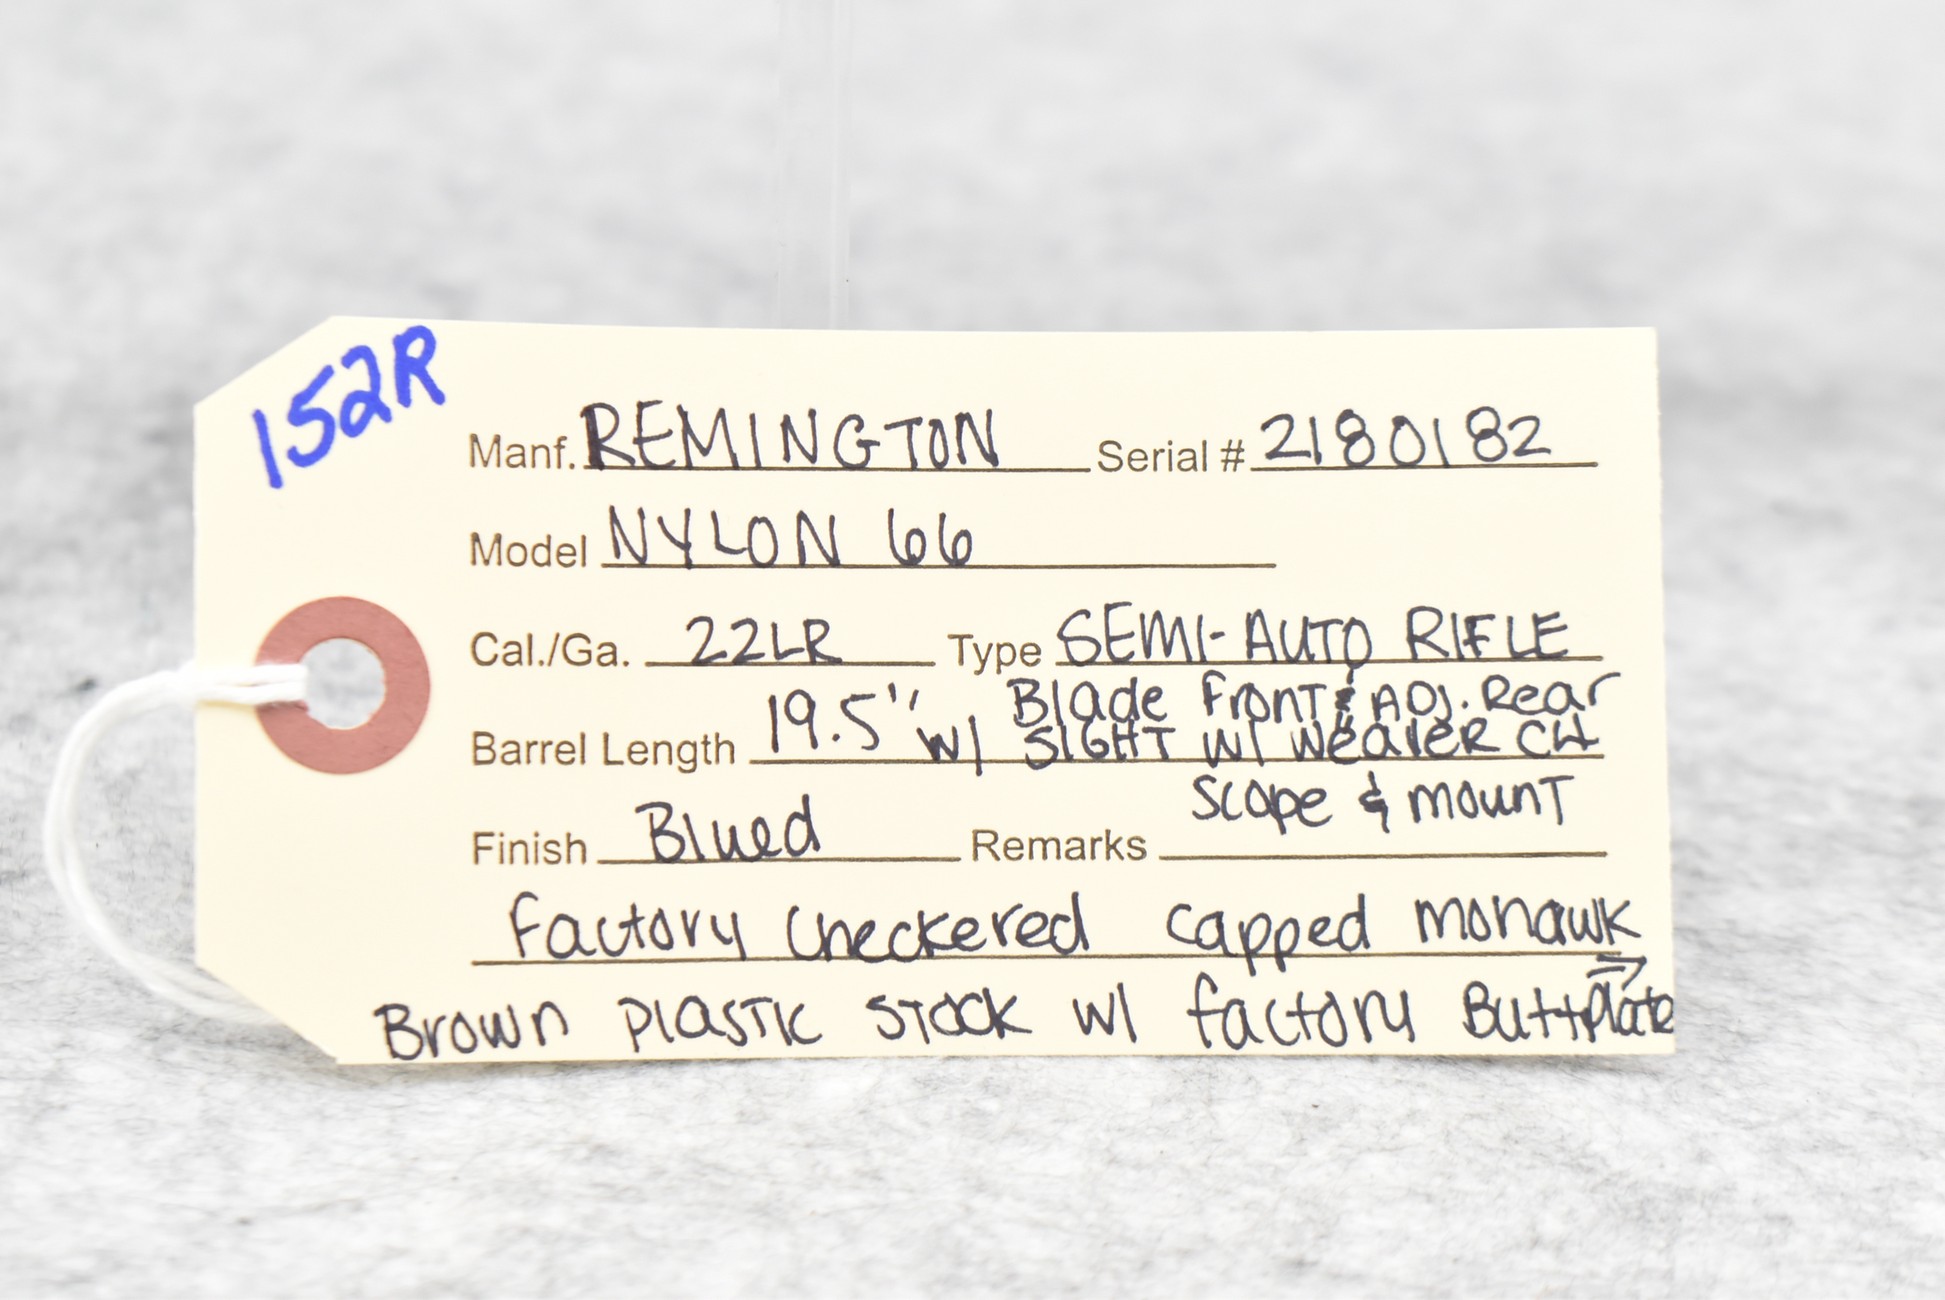 152R
Manf. REMINGTON Serial # 2180182
Model NYLON 66
Cal./Ga. 22LR Type SEMI-AUTO RIFLE
Barrel Length 19.5" w/ Blade Front & ADJ. Rear
SIGHT w/ Weaver C4
Scope & mount
Finish Blued Remarks
Factory Checkered Capped Mohawk
Brown Plastic Stock w/ factory Buttplate